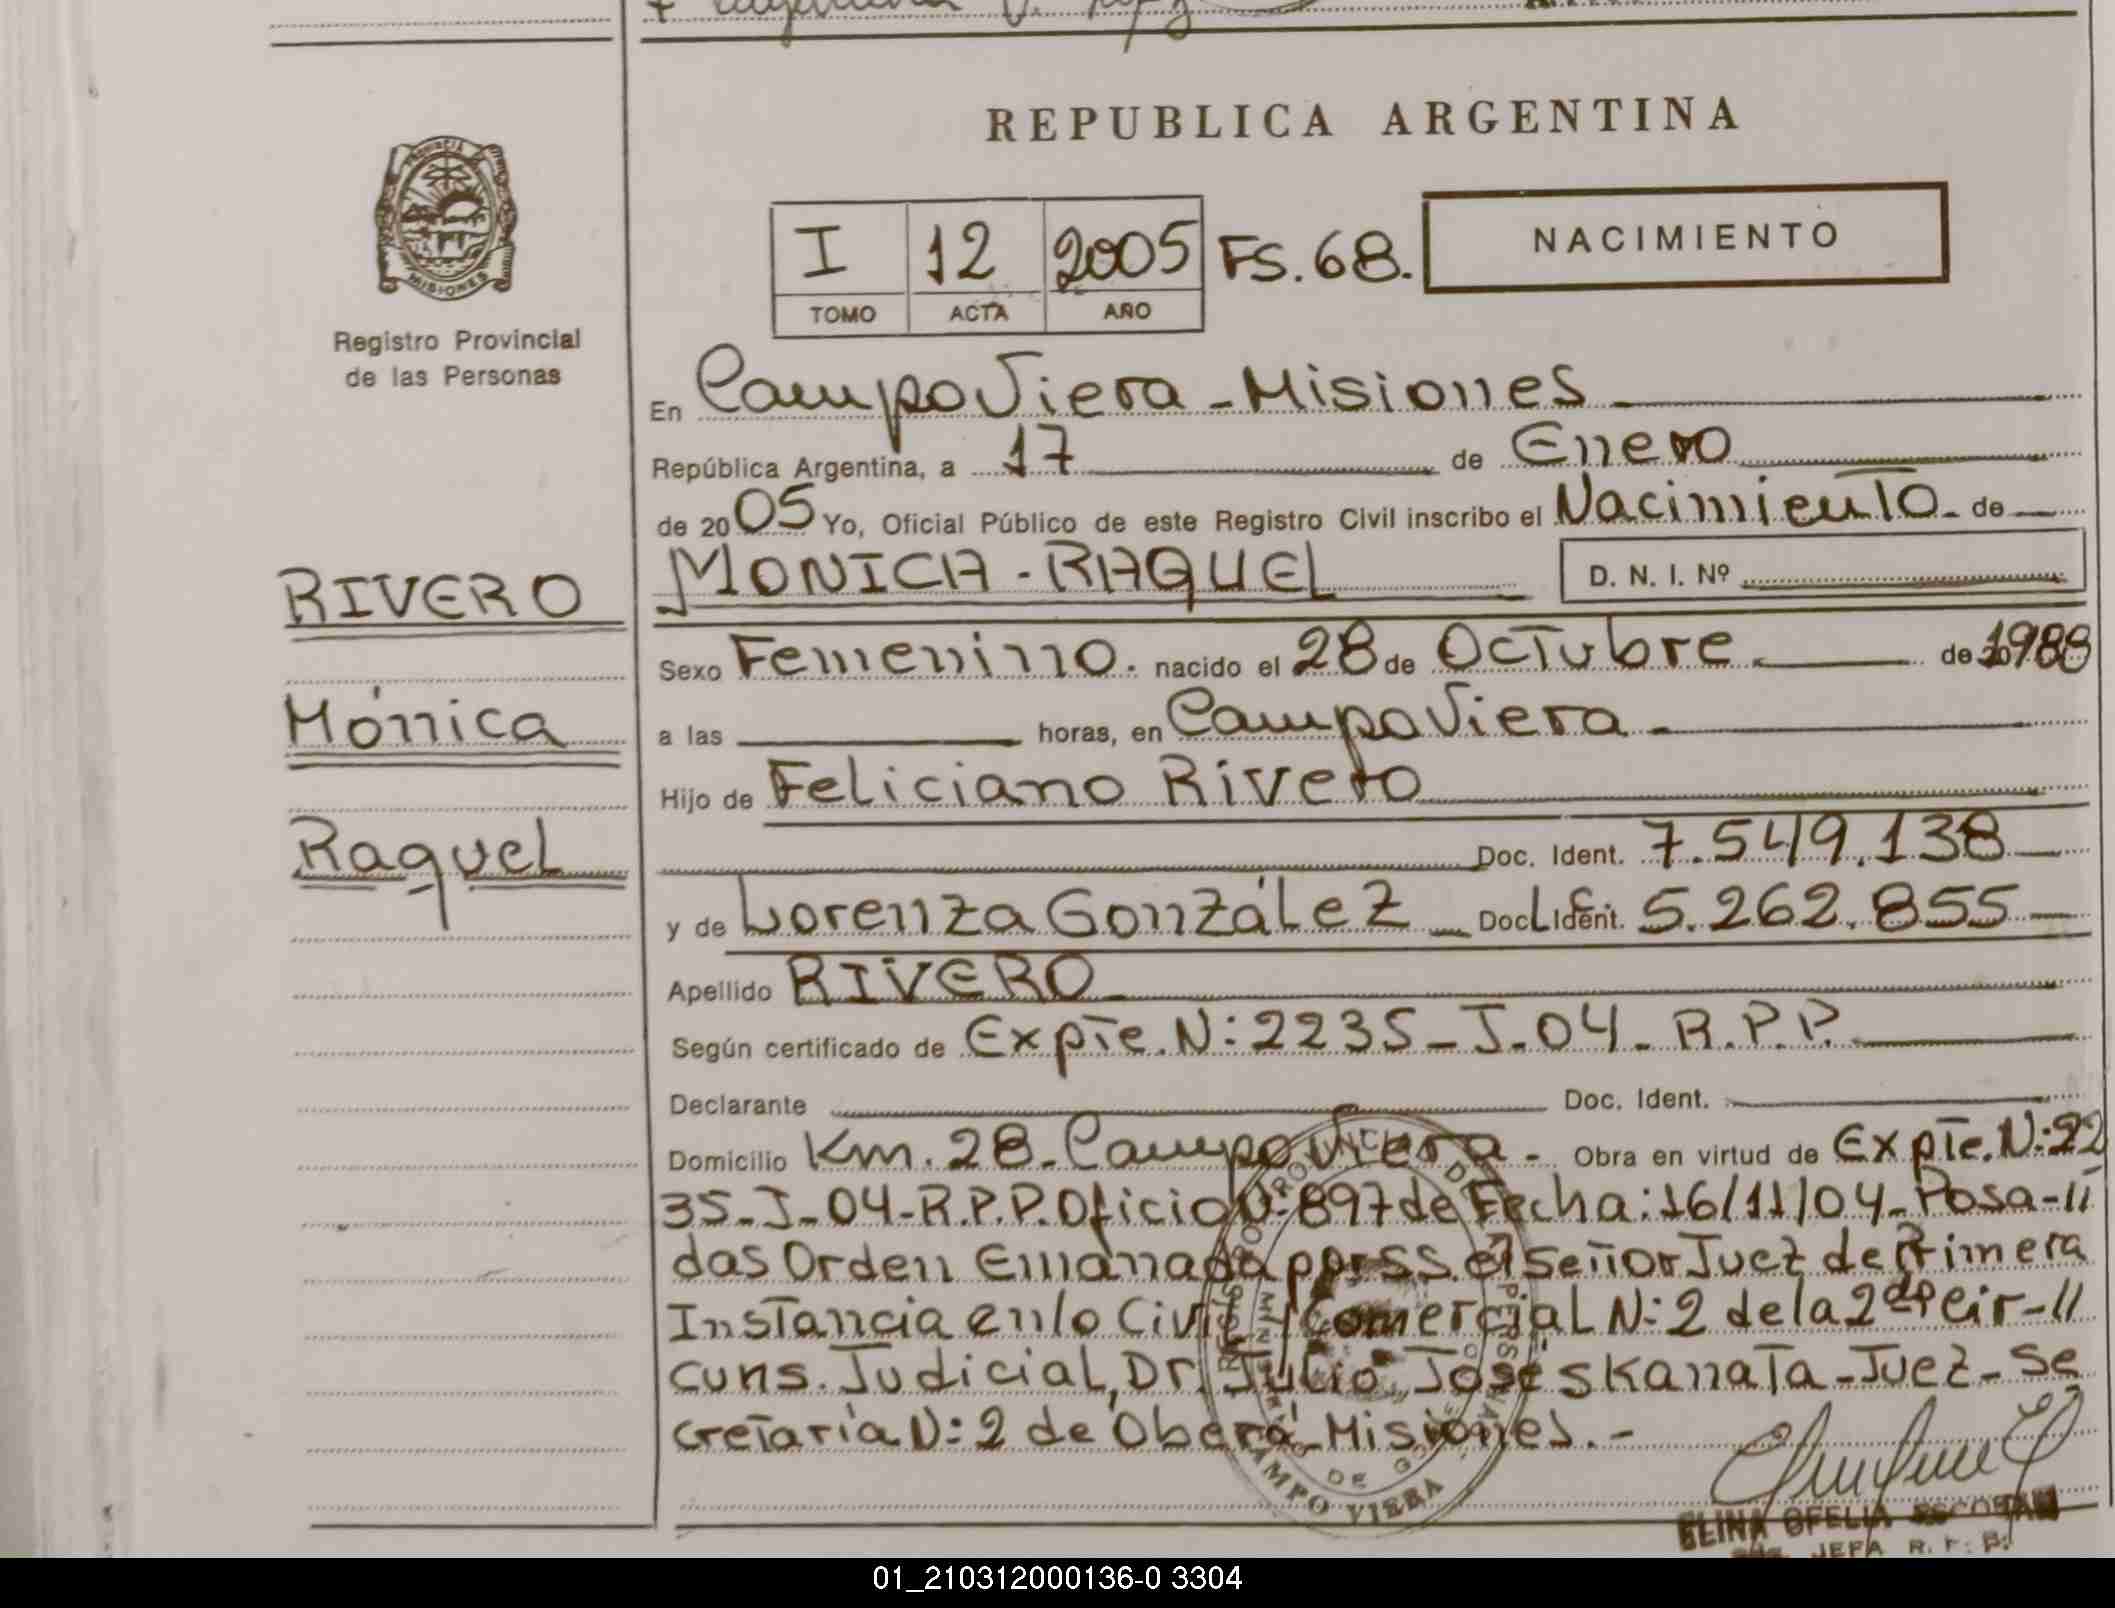 REPUBLICA ARGENTINA
PROVINCIA DE
MISIONES
Registro Provincial
de las Personas
I 12 2005 FS. 68.
TOMO ACTA AÑO
NACIMIENTO
En Campo Viera - Misiones
República Argentina, a 17 de Enero
de 2005 Yo, Oficial Público de este Registro Civil inscribo el Nacimiento - de
RIVERO
Mónica
Raquel
MONICA - RAQUEL D. N. I. Nº
Sexo Femenino. nacido el 28 de Octubre de 1988
a las horas, en Campo Viera -
Hijo de Feliciano Rivero
Doc. Ident. 7.549.138
y de Lorenza González Doc. Ident. L.C. 5.262.855
Apellido RIVERO
Según certificado de Expte. N: 2235 - J - 04 - R.P.P.
Declarante Doc. Ident.
Domicilio Km. 28 - Campo Viera - Obra en virtud de Expte. N: 22
35 - J - 04 - R.P.P. Oficio N: 897 de Fecha: 16/11/04 - Posa - //
das Orden Emanada por SS. el Señor Juez de Primera
Instancia en lo Civil y Comercial N: 2 de la 2da Cir - //
cuns. Judicial, Dr. Julio José Skanata - Juez - Se
cretaría N: 2 de Oberá - Misiones. -
CAMPO VIERA
ELINA OFELIA ESCOBAR
JEFA R. P. P.
01_210312000136-0 3304